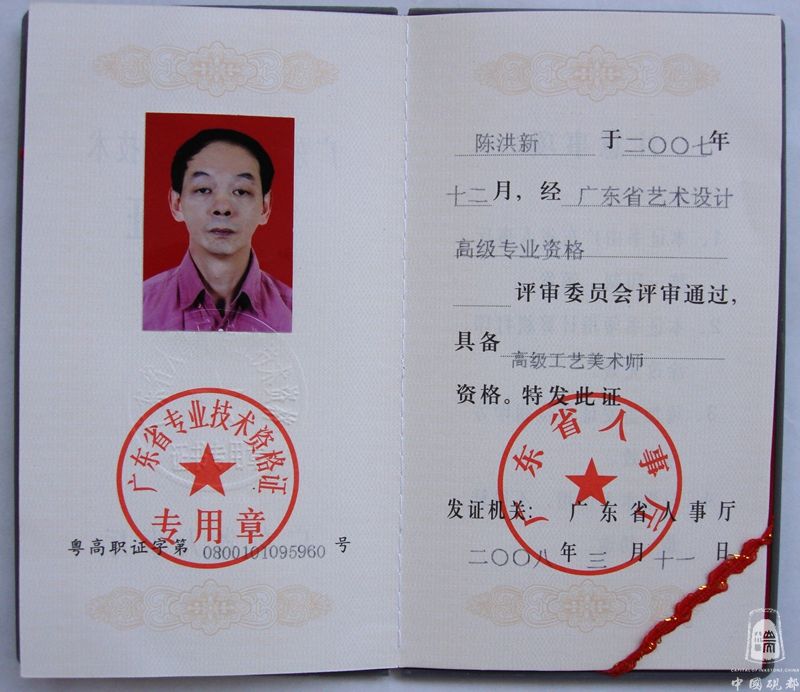 广东省专业技术资格证
专用章
粤高职证字第 0800101095960 号
陈洪新 于 二〇〇七年
十二月，经 广东省艺术设计
高级专业资格
评审委员会评审通过，
具备 高级工艺美术师
资格。特发此证
广东省人事厅
发证机关：广东省人事厅
二〇〇八年 三 月 十一 日
CAPITAL OF INKSTONE, CHINA
中國硯都